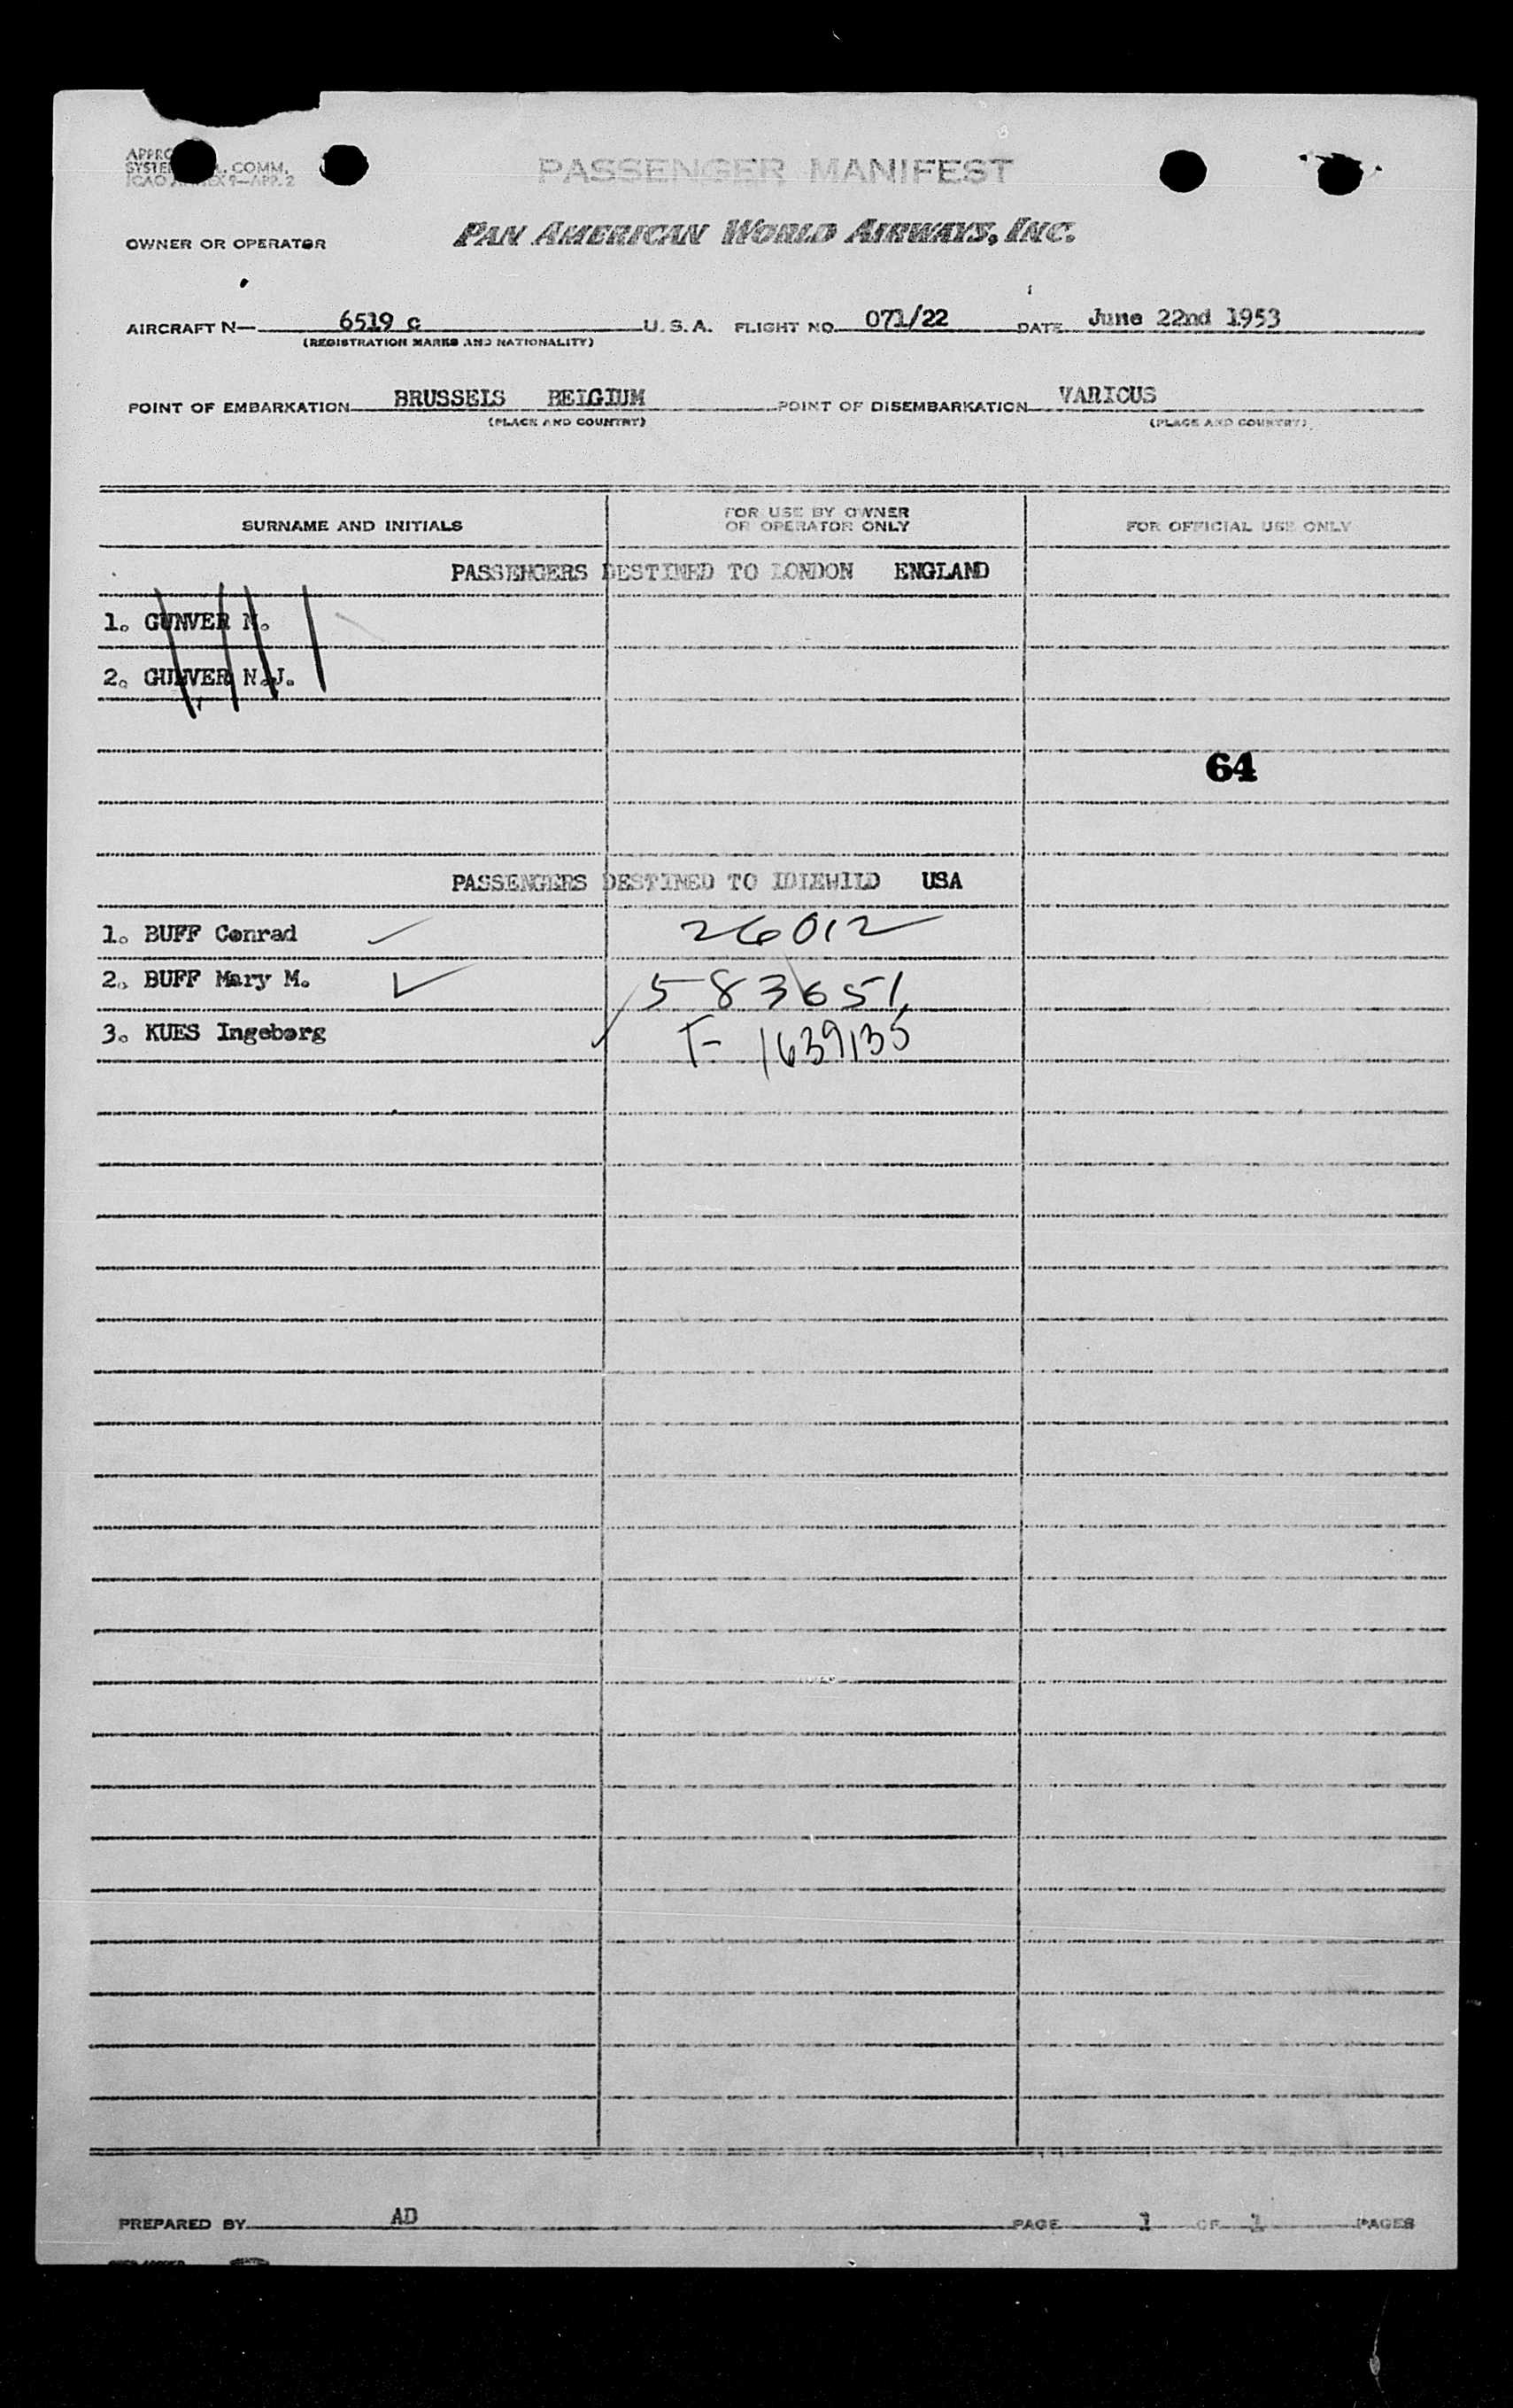 PASSENGER MANIFEST
OWNER OR OPERATOR PAN AMERICAN WORLD AIRWAYS, INC.
AIRCRAFT N— 6519 c U.S.A. FLIGHT NO. 071/22 DATE June 22nd 1953
(REGISTRATION MARKS AND NATIONALITY)
POINT OF EMBARKATION BRUSSELS BELGIUM POINT OF DISEMBARKATION VARIOUS
(PLACE AND COUNTRY) (PLACE AND COUNTRY)
SURNAME AND INITIALS
FOR USE BY OWNER
OR OPERATOR ONLY
FOR OFFICIAL USE ONLY
PASSENGERS DESTINED TO LONDON ENGLAND
1. GUNVER N.
2. GUNVER N.J.
64
PASSENGERS DESTINED TO IDLEWILD USA
1. BUFF Conrad 26012
2. BUFF Mary M. 583651
3. KUES Ingeborg F- 1639135
PREPARED BY AD PAGE 1 OF 1 PAGES